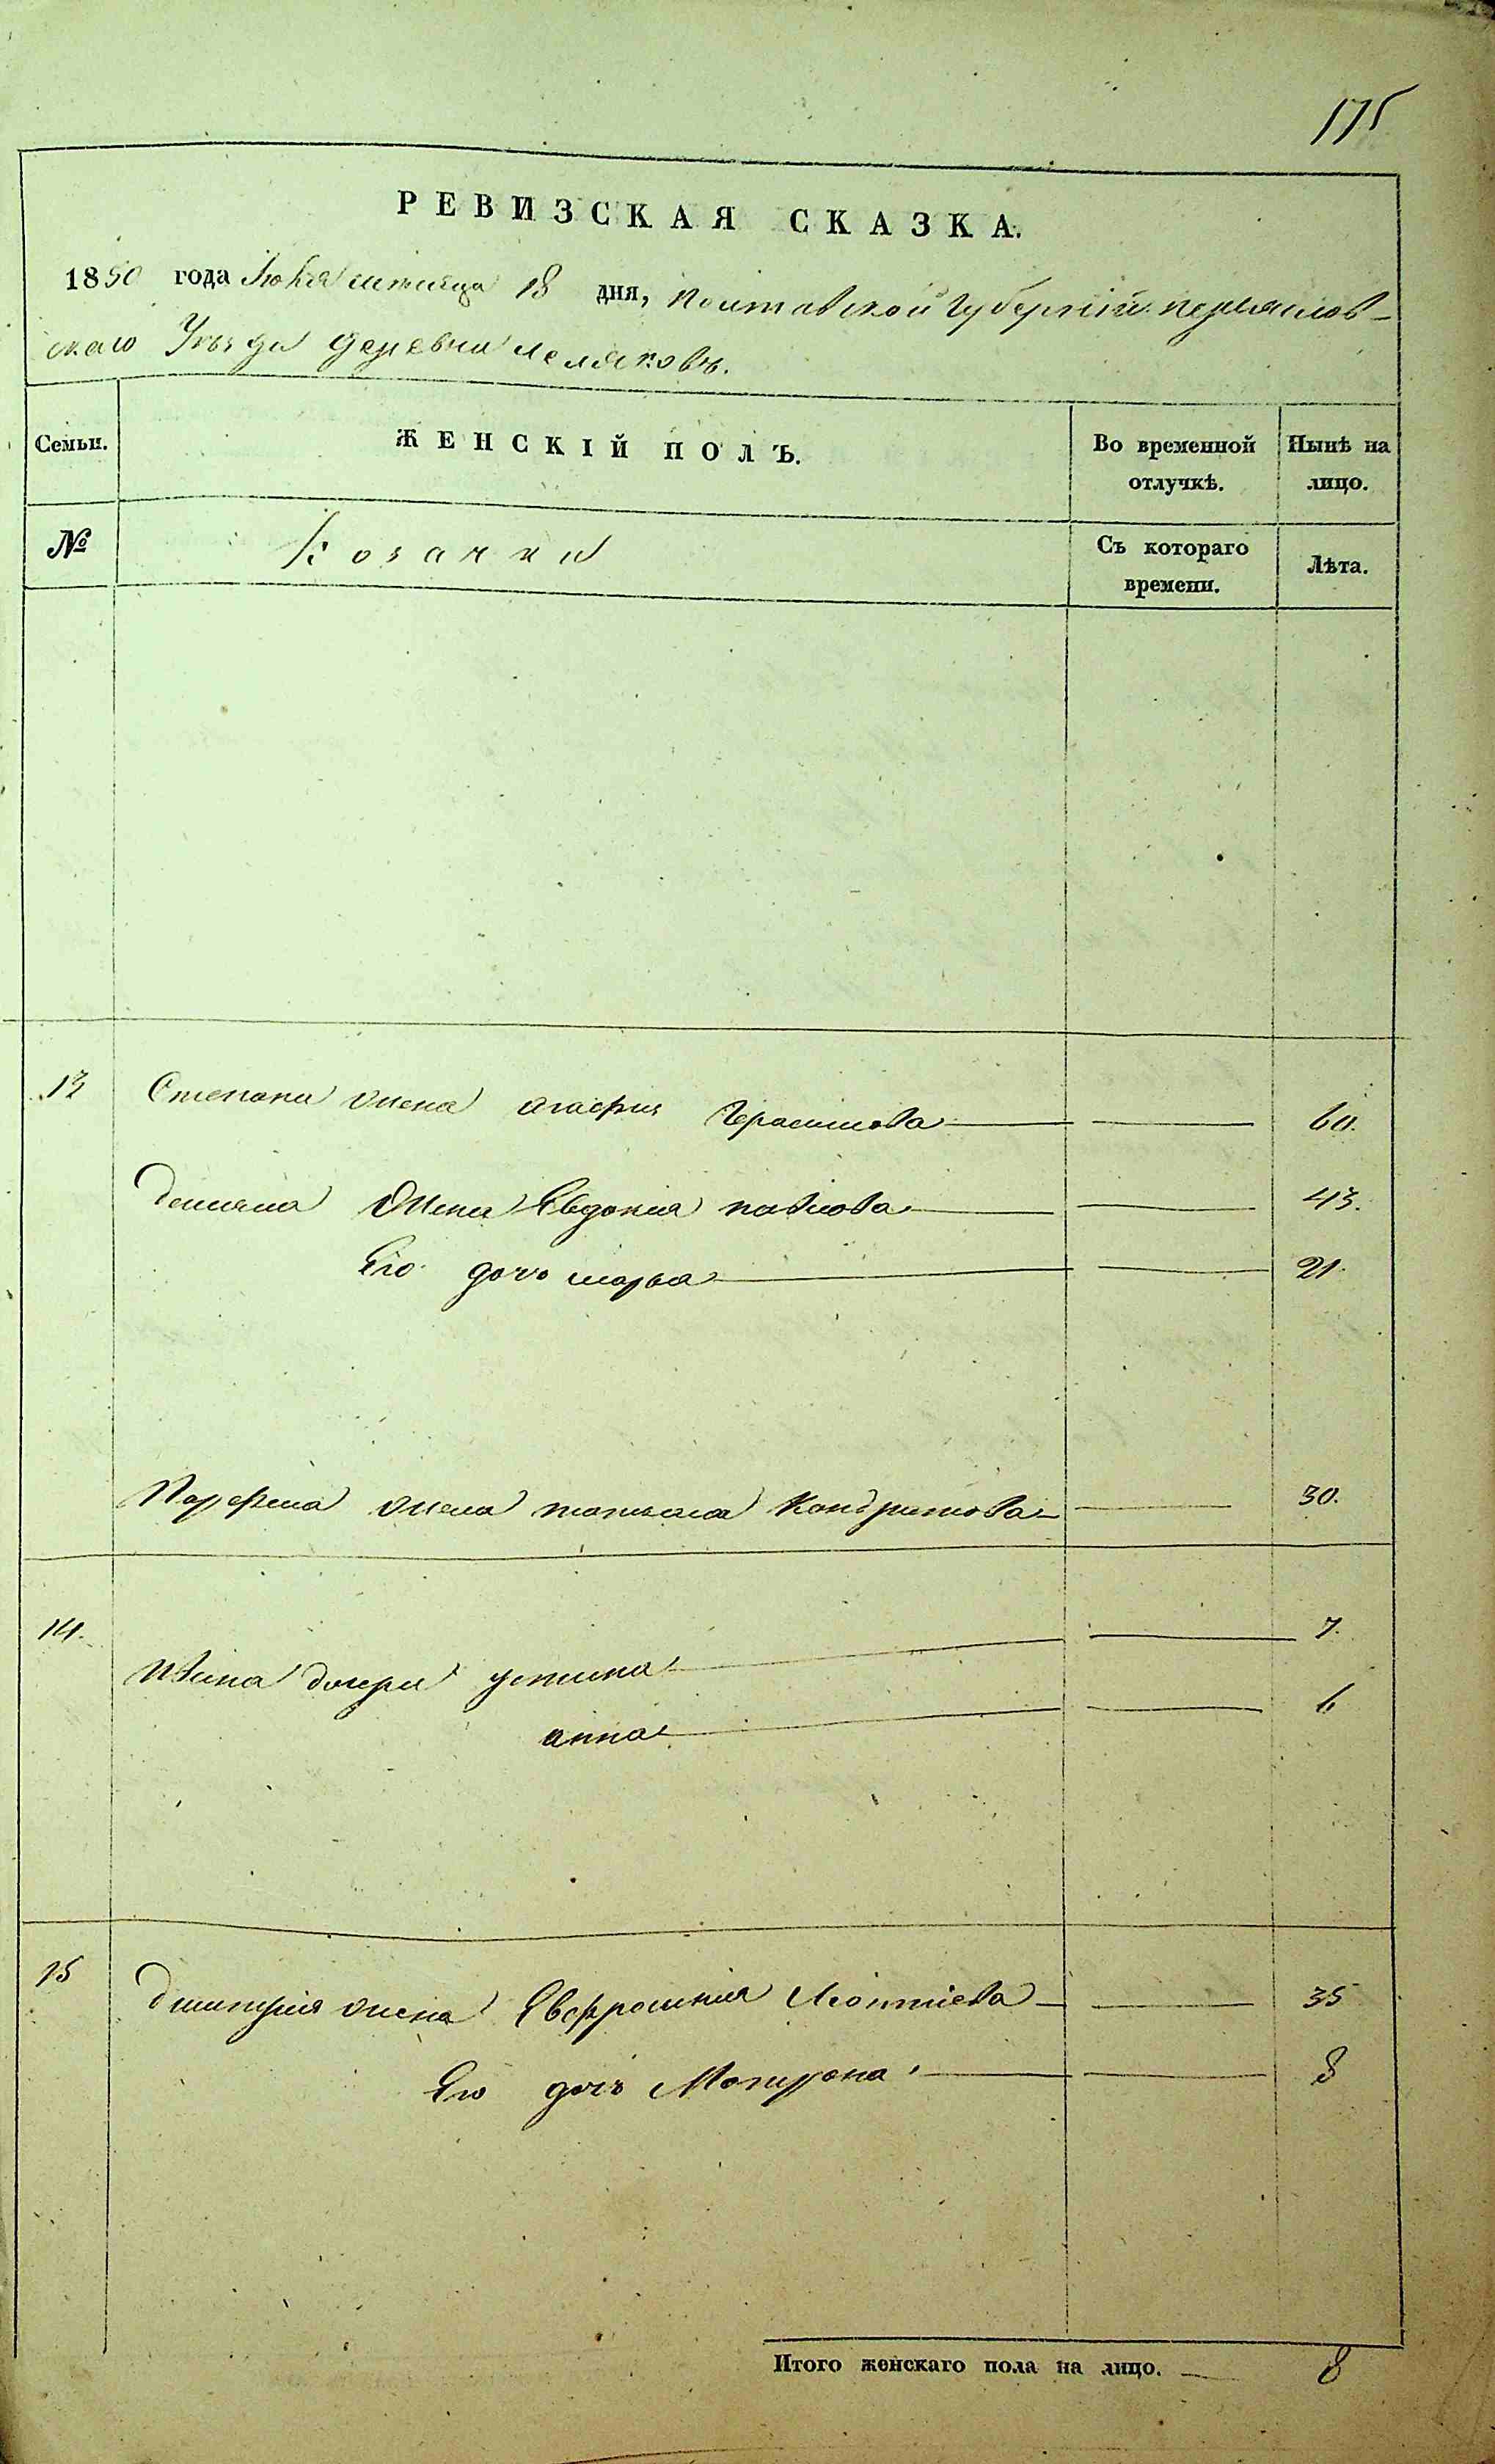 175
РЕВИЗСКАЯ СКАЗКА.
1850 года Июня месяца 18 дня, полтавской губернии переяслов-
скаго Уезда деревни
Семьи.
ЖЕНСКІЙ ПОЛЪ.
Во временной отлучкѣ.
Нынѣ на лицо.
№
Козачки
Съ котораго времени.
Лѣта.
13 Степана жена агафия Герасимова 60.
демяна жена Евдокия павлова 43.
Его дочь марья 21.
жена татьяна Кондратова 30.
14. дочери устина 7.
анна 6
15 дмитрия жена Евфросиния Леонтиева 35
Его дочъ Мотрона 8
Итого женскаго пола на лицо. 8